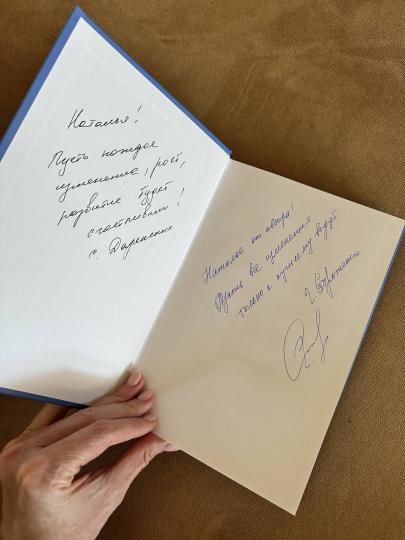 Наталья!
Пусть каждое
изменение, рост,
развитие будет
счастливым!
с. Даренских
Наталье от автора!
Пусть все изменения
только к лучшему ведут